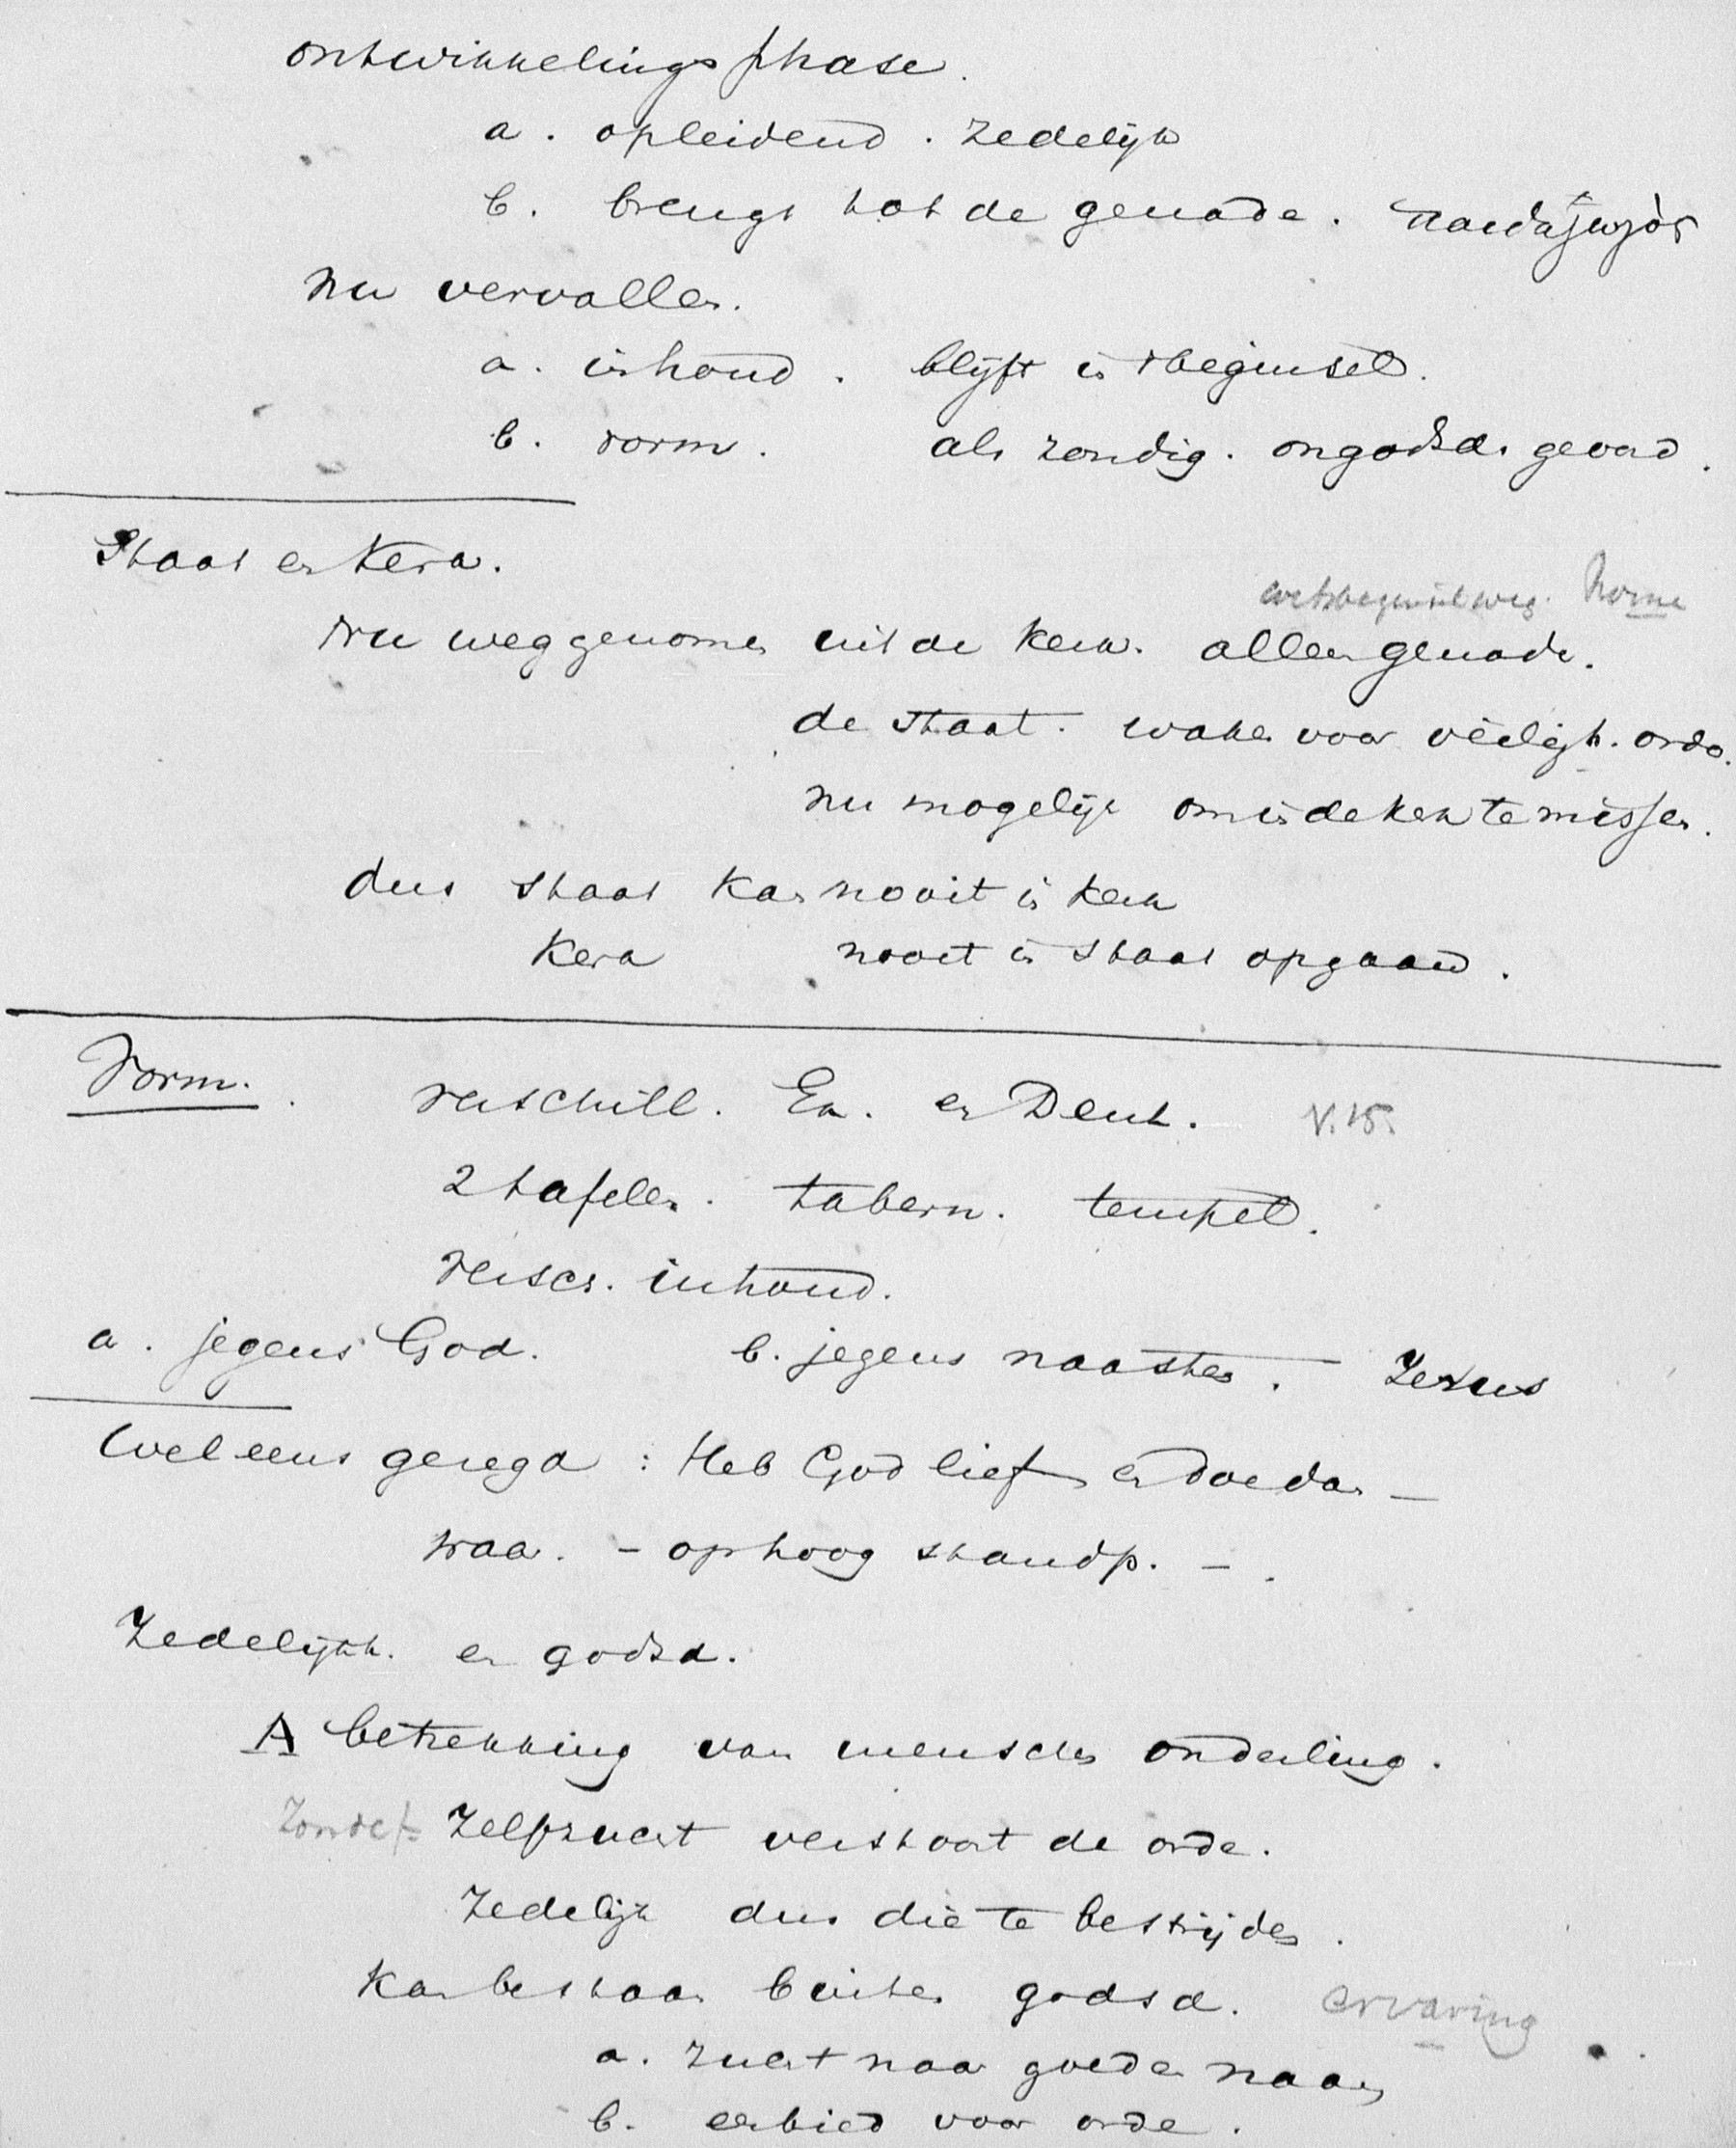 ontwikkelingsphase.
a. opleidend. zedelijk
b. brengt tot de genade. παιδαγωγὸς
nu vervallen.
a. inhoud. blijft in beginsel.
b. vorm. als zondig. ongodsd. gevaar.
Staat en Kerk.
wetsbeginsel weg. Norme
Nu weggenomen uit de Kerk. alleen genade.
de staat. waken voor veiligh. orde.
nu mogelijk om in de kerk te missen.
dus staat kan nooit in kerk
Kerk nooit in staat opgaan.
Vorm.
verschill. Ex. en Deut. V. 15.
2 tafelen. tabern. tempel.
versch. inhoud.
a. jegens God. b. jegens naasten. Jezus
Wel eens gezegd : Heb God lief en doe dan —
waar. - op hoog standp. -.
Zedelijkh. en godsd.
A betrekking van menschen onderling.
Zonde = Zelfzucht verstoort de orde.
Zedelijk dus die te bestrijden.
Kan bestaan buiten godsd. ervaring
a. zucht naar goeden naam
b. eerbied voor orde.